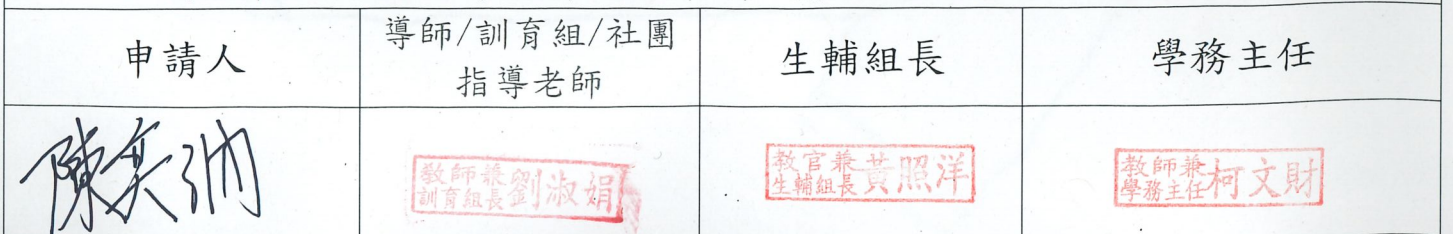 申請人
導師/訓育組/社團
指導老師
生輔組長
學務主任
教師兼
訓育組長
劉淑娟
教官兼
生輔組長
黃照洋
教師兼
學務主任
柯文財